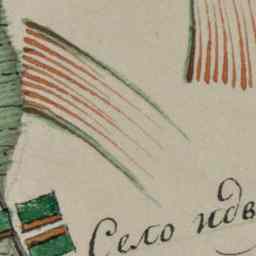 Село идв